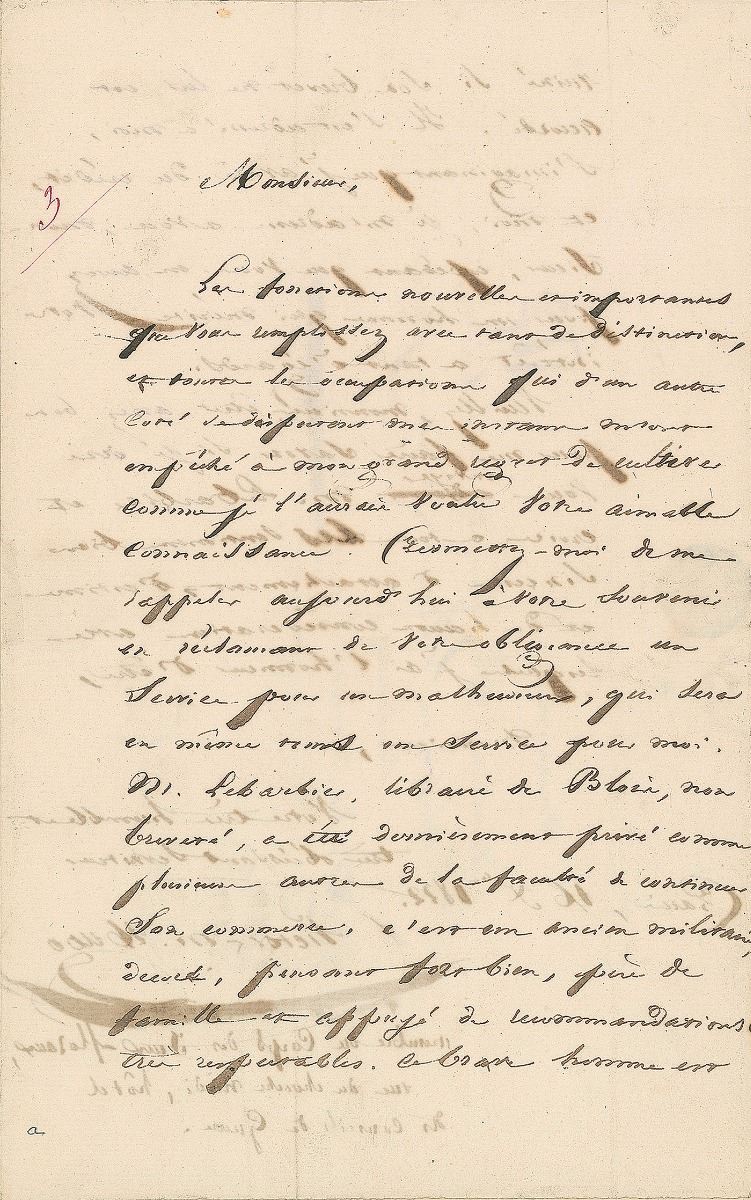 3
Monsieur,
Les fonctions nouvelles et importantes
que vous remplissez avec tant de distinction,
et toutes les occupations qui d'un autre
coté se disputent mes instans m'ont
empêché à mon grand regret de cultiver
comme je l'aurais voulu votre aimable
connaissance. Permettez-moi de me
rappeler aujourd'hui à votre souvenir
en réclamant de votre obligeance un
service pour un malheureux, qui sera
en même tems un service pour moi.
M. Lebarbier, libraire de Blois, non
breveté, a été dernièrement privé comme
plusieurs autres de la faculté de continuer
son commerce. c'est un ancien militaire,
decoré, pensant fort bien, père de
famille et appuyé de recommandations
très respectables. ce brave homme est
a